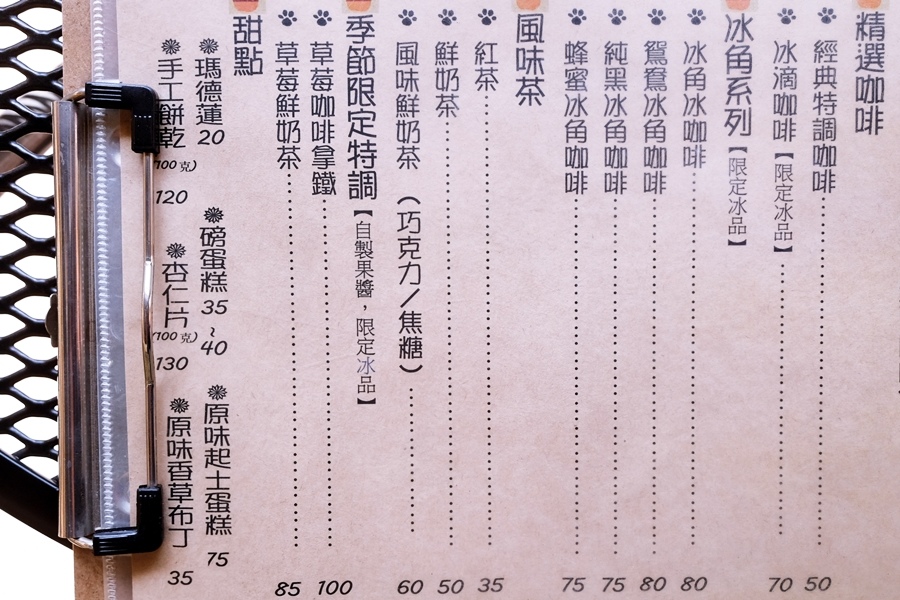 精選咖啡
經典特調咖啡 50
冰滴咖啡【限定冰品】 70
冰角系列【限定冰品】
冰角冰咖啡 80
鴛鴦冰角咖啡 80
純黑冰角咖啡 75
蜂蜜冰角咖啡 75
風味茶
紅茶 35
鮮奶茶 50
風味鮮奶茶(巧克力/焦糖) 60
季節限定特調【自製果醬,限定冰品】
草莓咖啡拿鐵 100
草莓鮮奶茶 85
甜點
瑪德蓮 20
磅蛋糕 35~40
原味起士蛋糕 75
手工餅乾(100克) 120
杏仁片(100克) 130
原味香草布丁 35